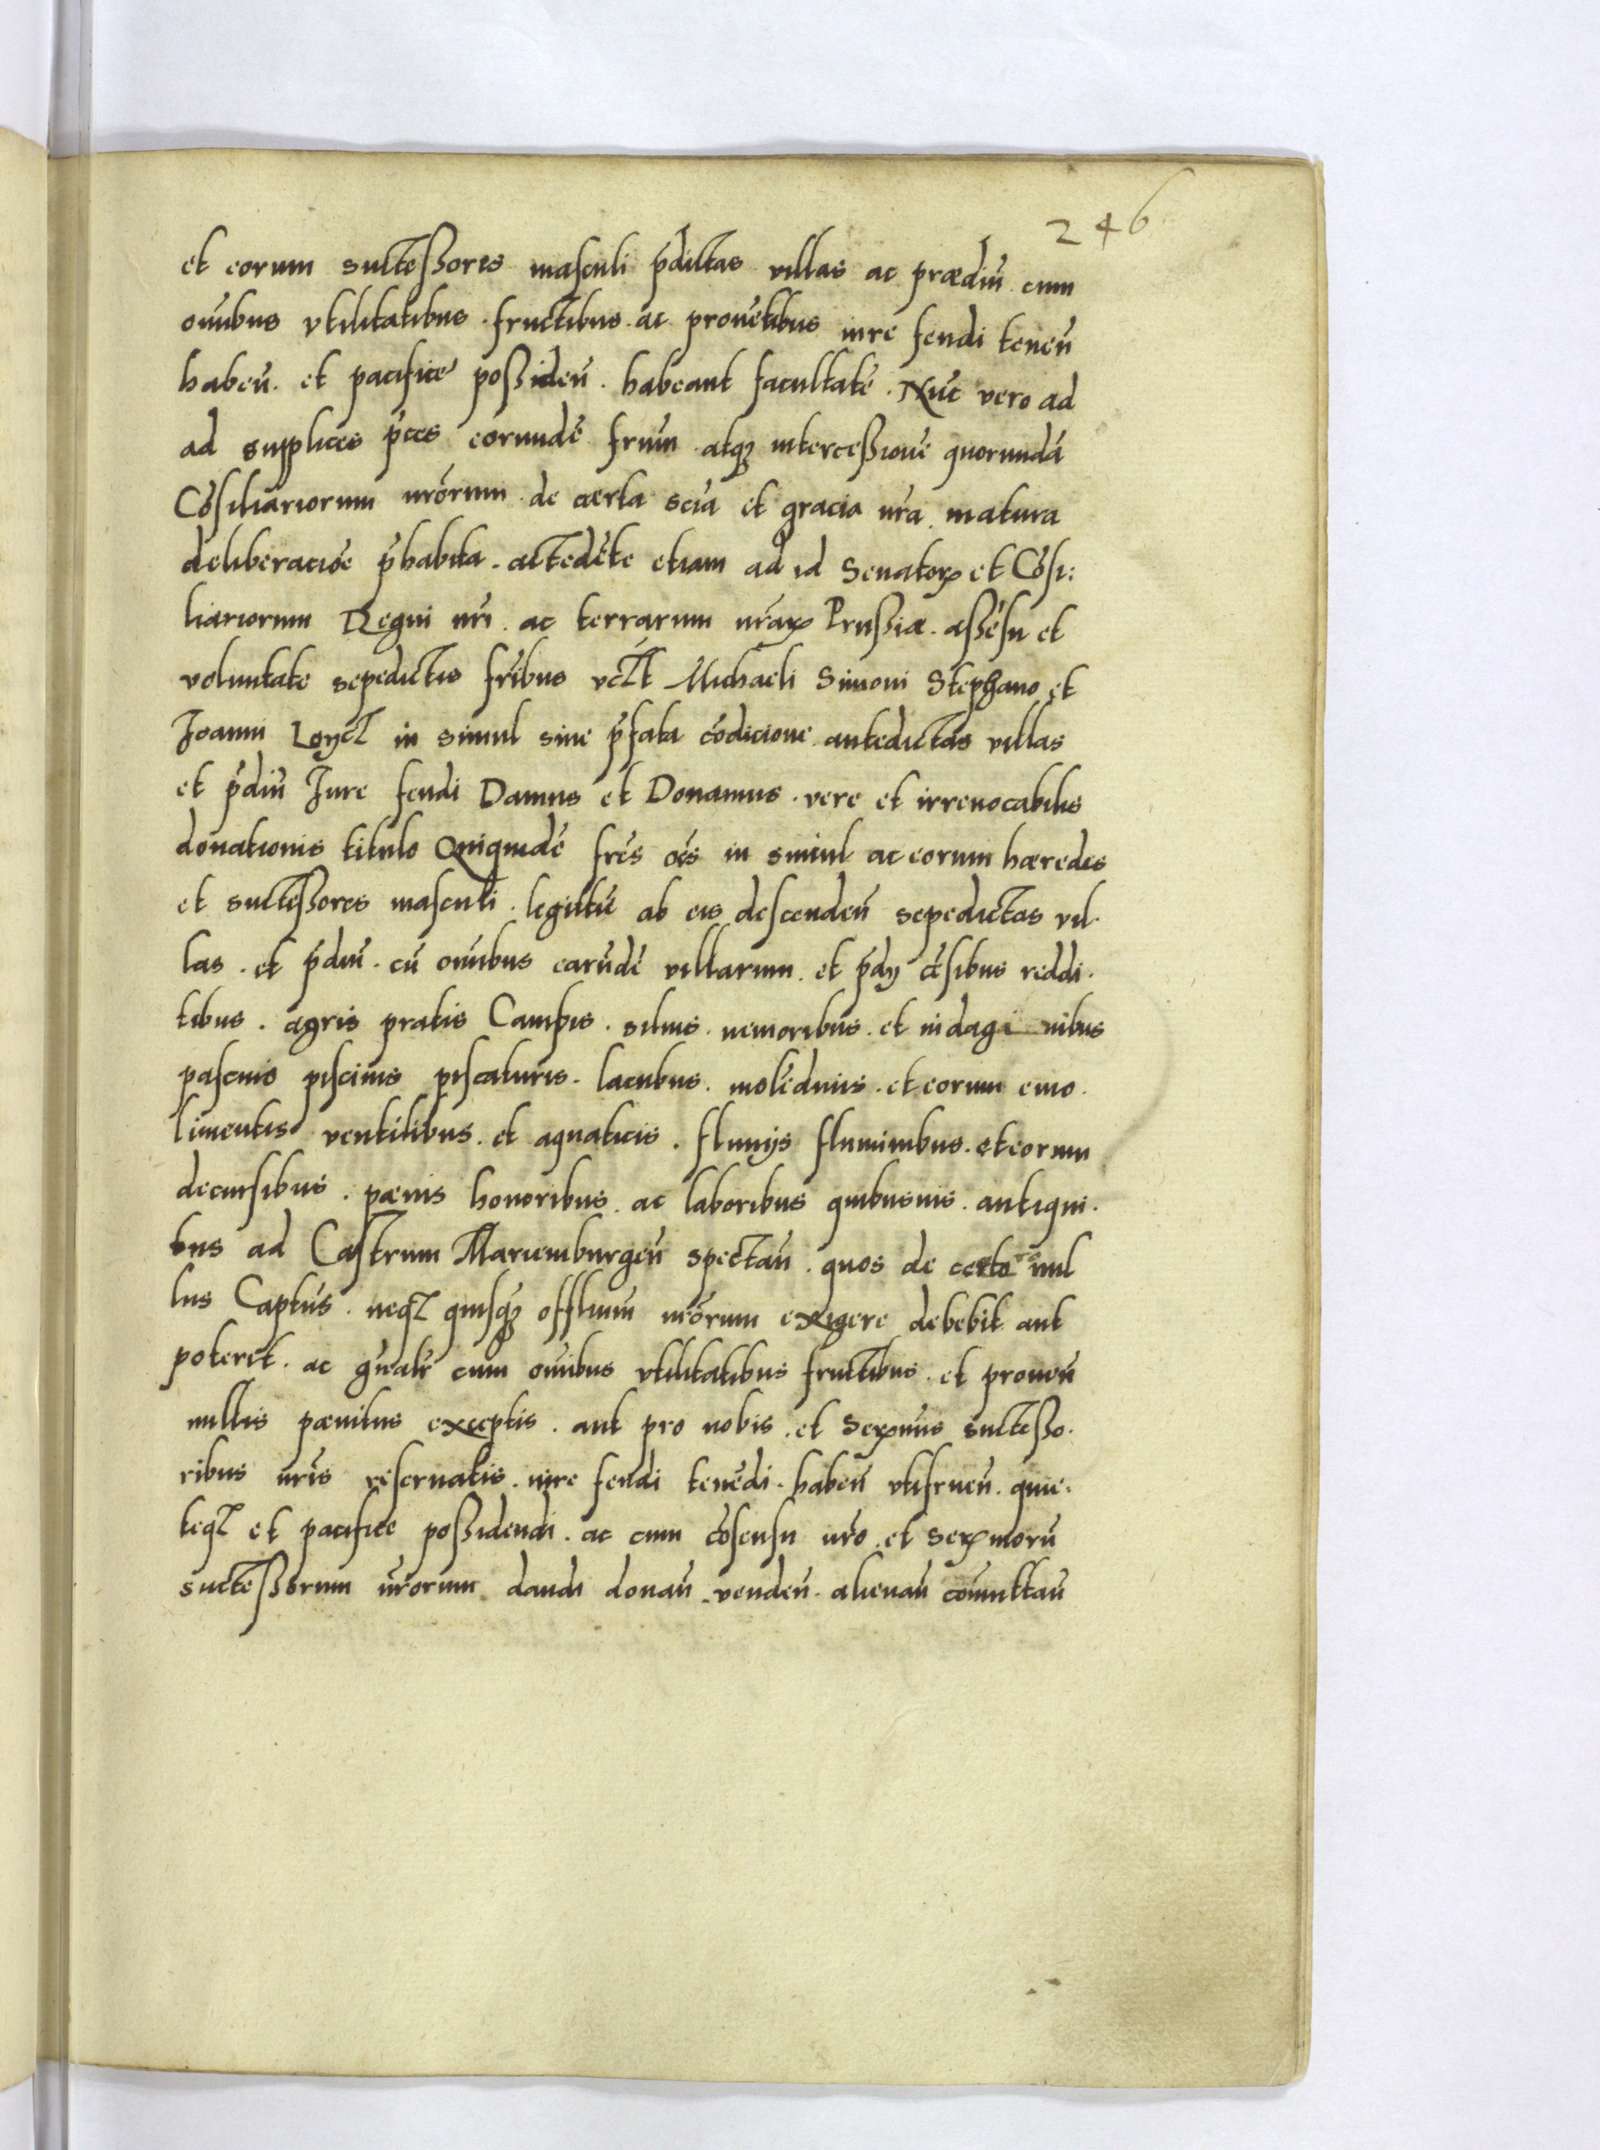 246
et eorum successores masculi p̄dictas villas ac prædiū cum
om̄ibus vtilitatibus . fructibus . ac prouētibus iure feudi teneñ
habeñ . et pacifice possideñ . habeant facultatē . Nūc vero ad
ad supplices p̄ces eorundē fr̄um atq₃ intercessione quorundā
Cōsiliariorum nr̄orum de certa scīa et gracia nr̄a matura
deliberaciōe p̄habita . accedēte etiam ad id Senatoꝝ et Cōsi:
liariorum Regni nr̄i ac terrarum nr̄aꝝ Prussiæ . assēsu et
voluntate sepedictis fr̄ibus vꝫt Michaeli Simoni Stephano et
Joanni Loycz in simul siue p̄fata cōdicione antedictas villas
et p̄diū Jure feudi Damus et Donamus . vere et irreuocabilis
donationis titulo Quiquidē fr̄es oēs in simul ac eorum hæredes
et successores masculi . legittīe ab eis descendeñ sepedictas vil-
las . et p̄diū . cū om̄ibus earūdē villarum et p̄dij cēsibus reddi-
tibus . agris pratis Campis . siluis . nemoribus . et indagi nibus
pascuis piscinis piscaturis . lacubus . molēdinis . et eorum emo-
limentis ventilibus . et aquaticis . fluuijs fluminibus . et eorum
decursibus . pænis honoribus . ac laboribus quibusuis . antiqui-
tus ad Castrum Mariemburgeñ spectañ . quos de certo nul
lus Captus . neqꝫ quisq₃ offlium nr̄orum exigere debebit aut
poterit . ac gn̄alr̄ cum om̄ibus vtilitatibus fructibus . et proueñ
nullis pænitus exceptis . aut pro nobis . et Serᵐis successo-
ribus nr̄is reseruatis . iure feudi tenēdi . habeñ vtifrueñ . quie-
teqꝫ et pacifice possidendi . ac cum cōsensu nr̄o . et Serᵐorū
successorum nr̄orum dandi donañ . vendeñ . alienañ com̄uttañ